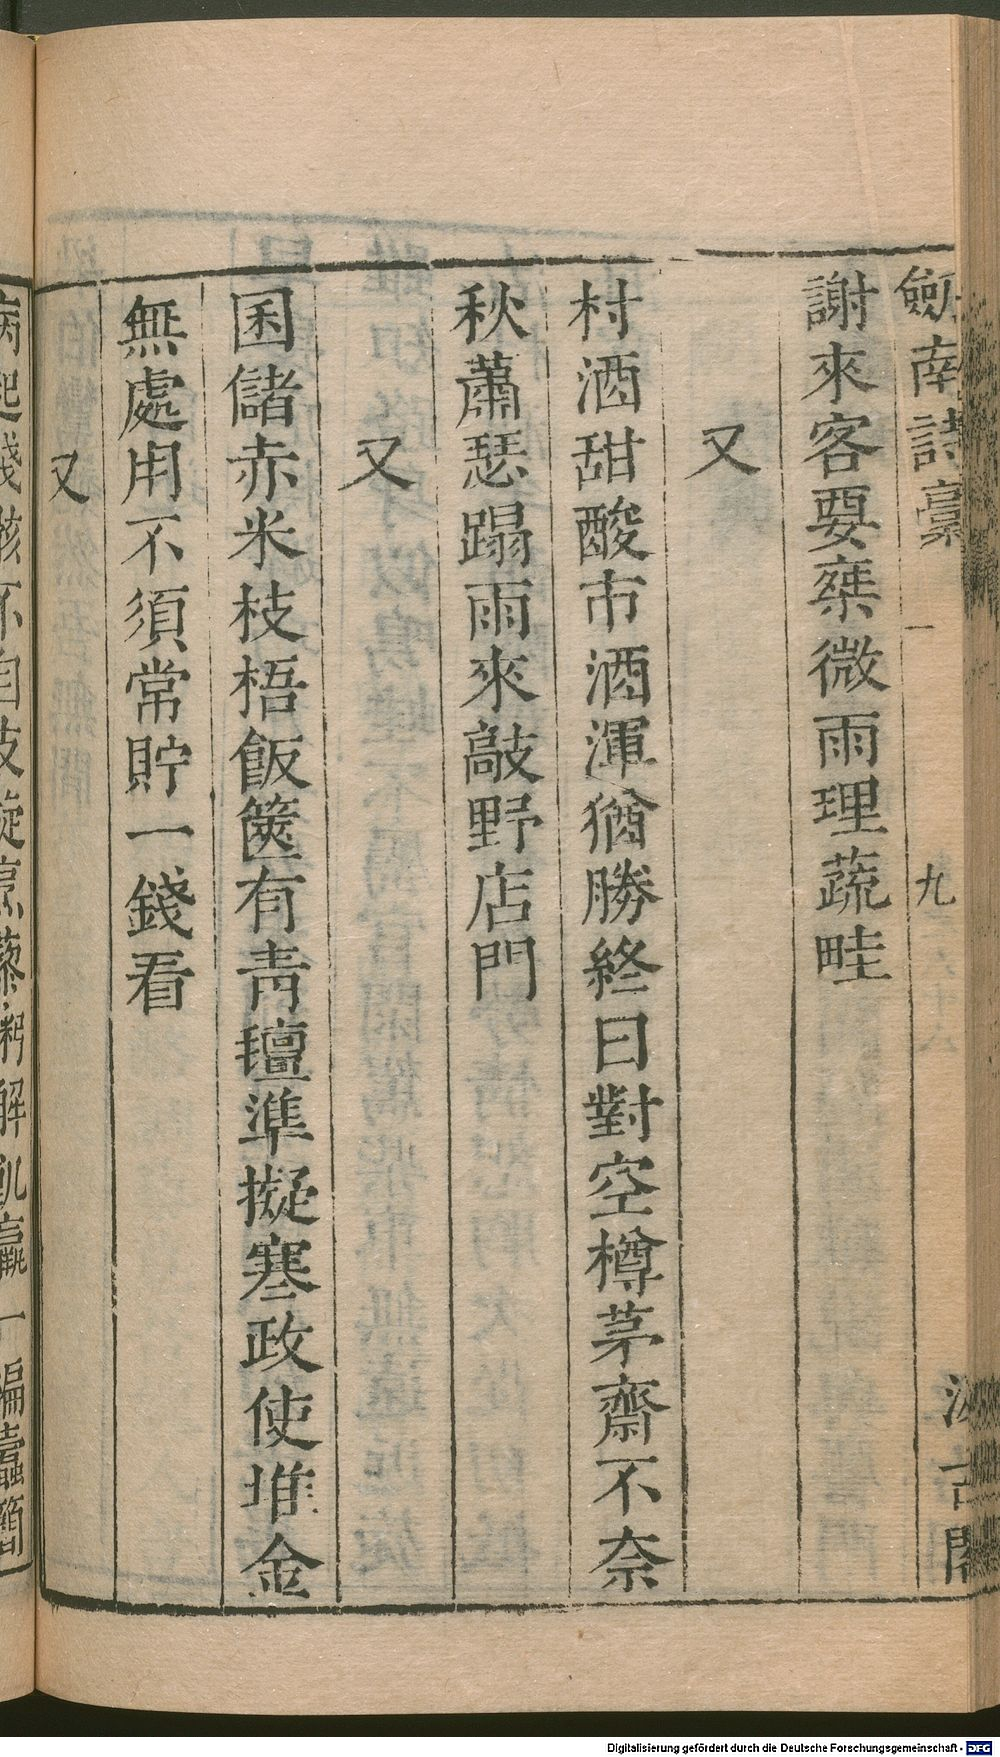 劍南詩稾
一
九
汲古閣
謝來客要乘微雨理蔬畦
又
村酒甜酸市酒渾猶勝終日對空樽茅齋不奈
秋蕭瑟蹋雨來敲野店門
又
囷儲赤米枝梧飯篋有青氊準擬寒政使堆金
無處用不須常貯一錢看
又
病起殘骸不自支旋烹藜粥解飢羸一編蠹簡
Digitalisierung gefördert durch die Deutsche Forschungsgemeinschaft - DFG